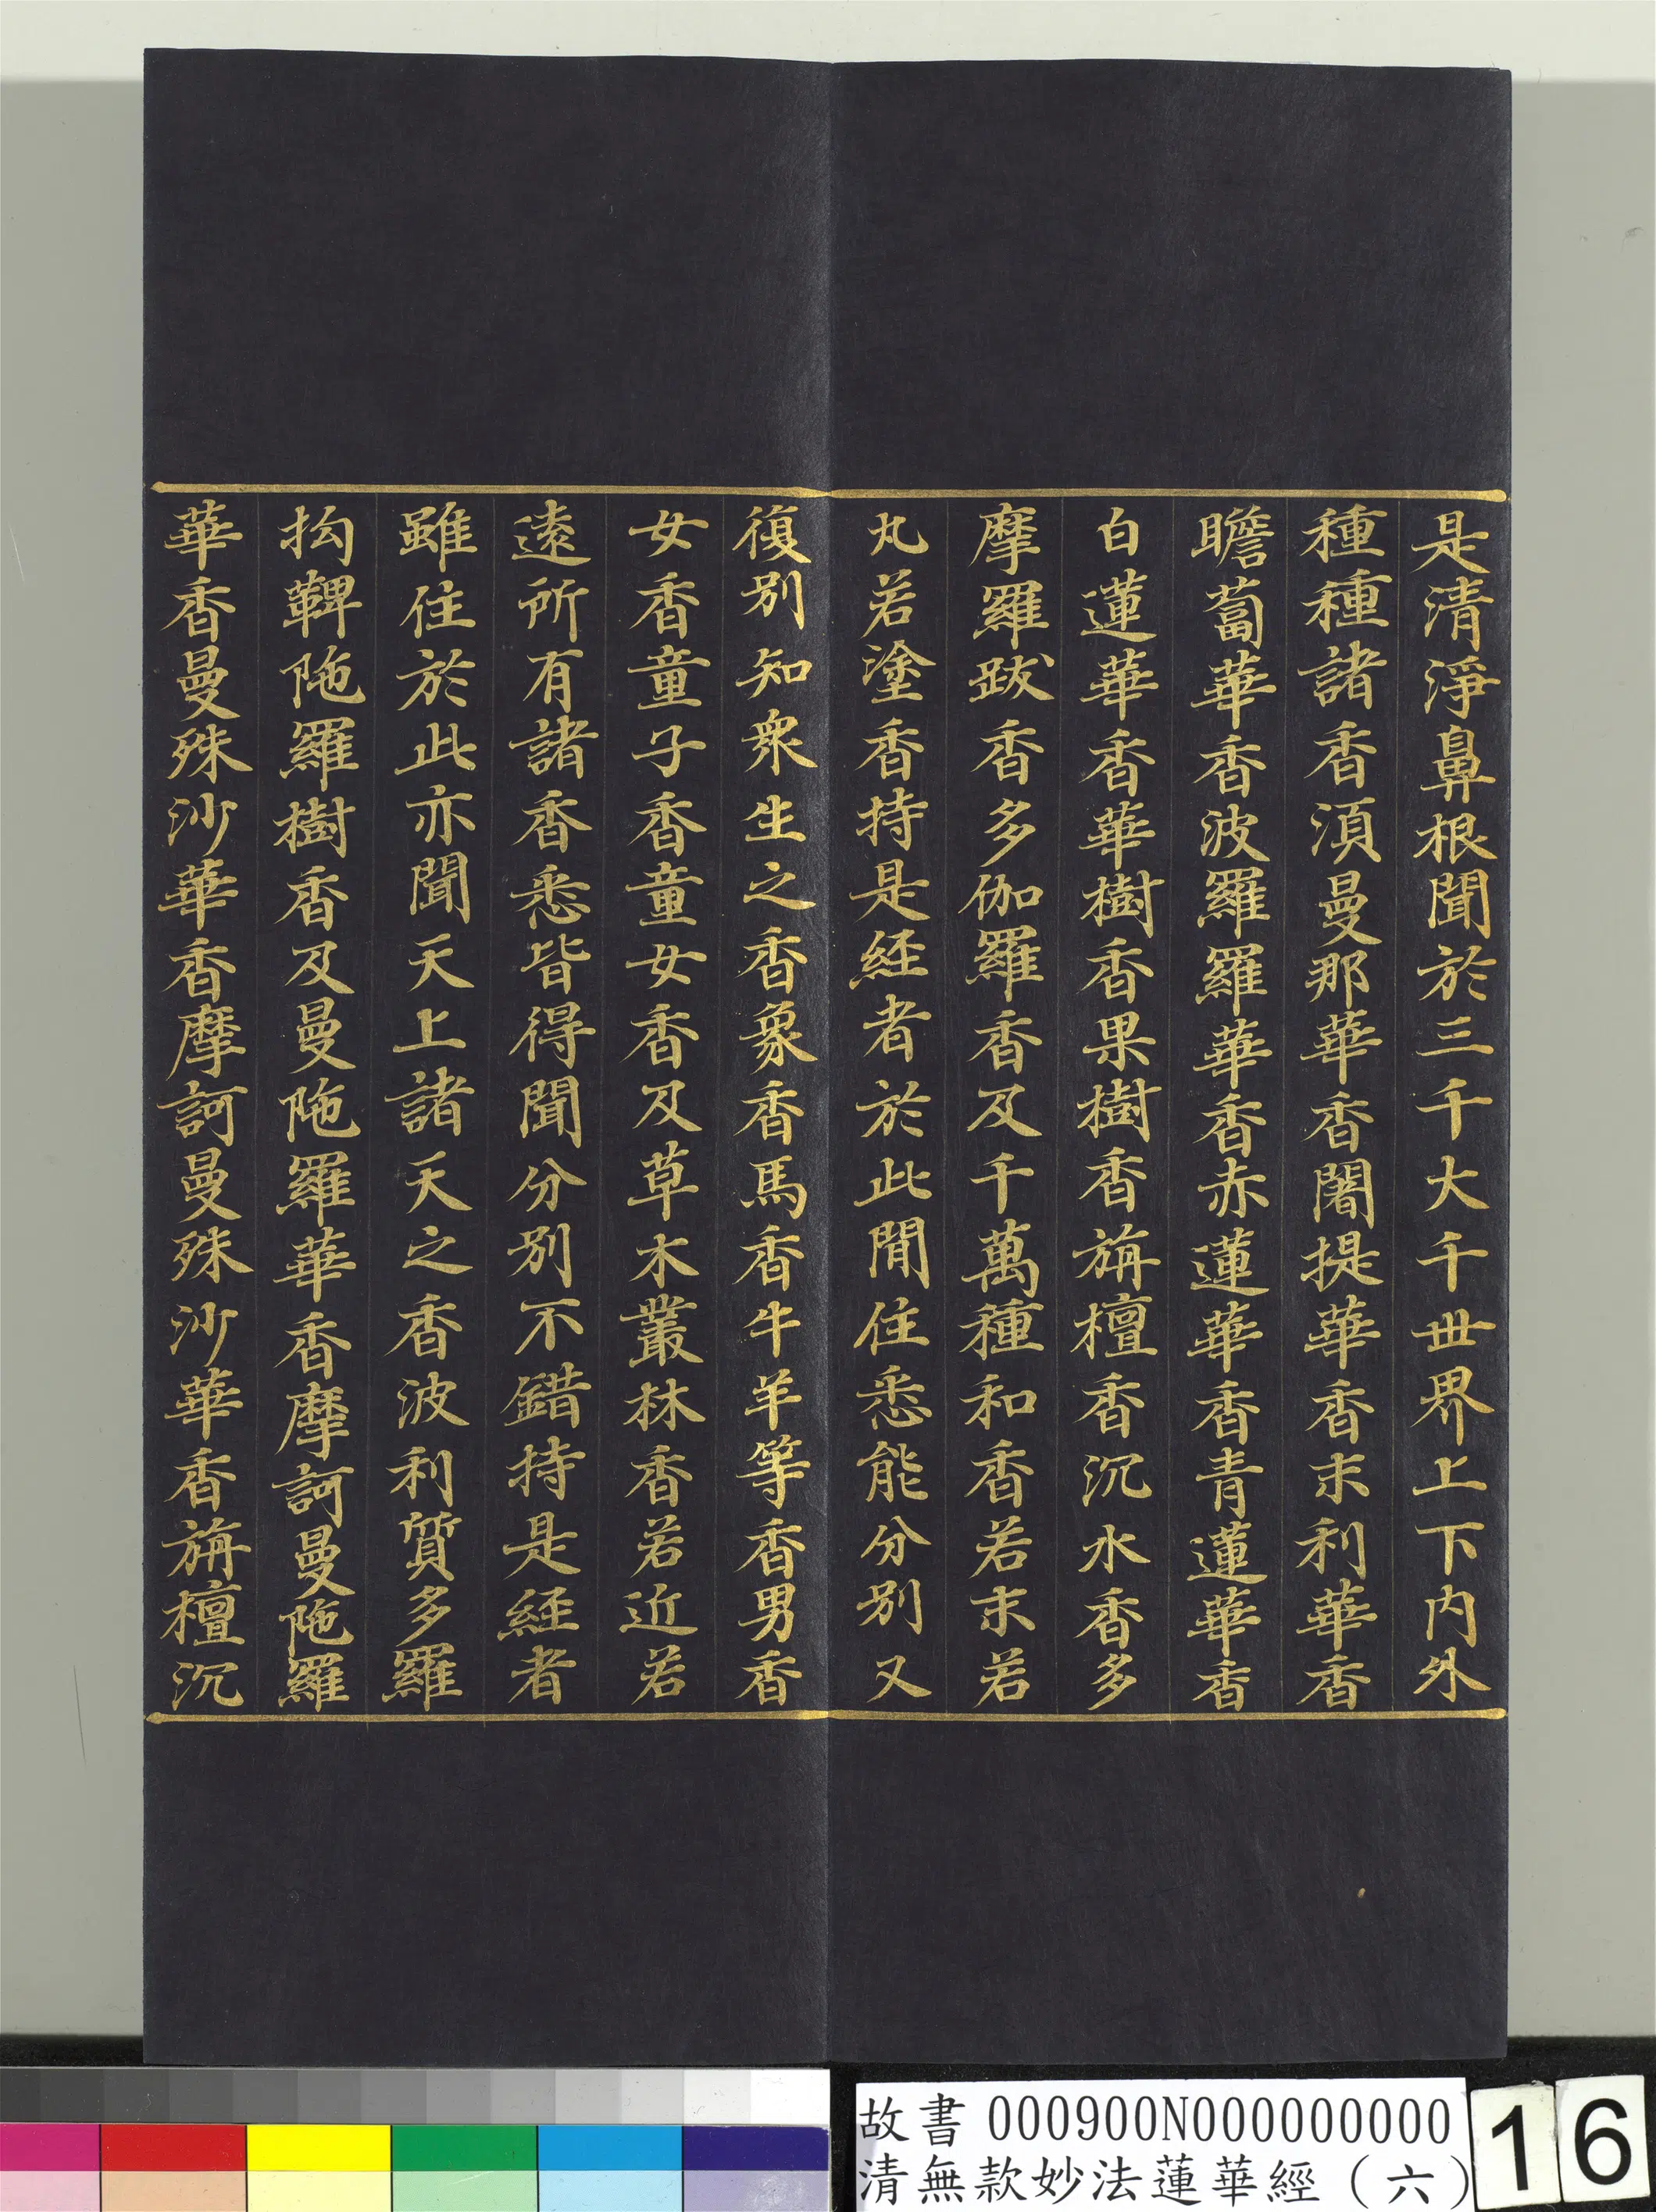 是清淨鼻根聞於三千大千世界上下內外
種種諸香須曼那華香闍提華香末利華香
瞻蔔華香波羅羅華香赤蓮華香青蓮華香
白蓮華香華樹香果樹香旃檀香沉水香多
摩羅跋香多伽羅香及千萬種和香若末若
丸若塗香持是経者於此閒住悉能分別又
復別知衆生之香象香馬香牛羊等香男香
女香童子香童女香及草木叢林香若近若
遠所有諸香悉皆得聞分別不錯持是経者
雖住於此亦聞天上諸天之香波利質多羅
拘鞞陁羅樹香及曼陁羅華香摩訶曼陁羅
華香曼殊沙華香摩訶曼殊沙華香旃檀沉
故書 000900N000000000
清無款妙法蓮華經（六）
16